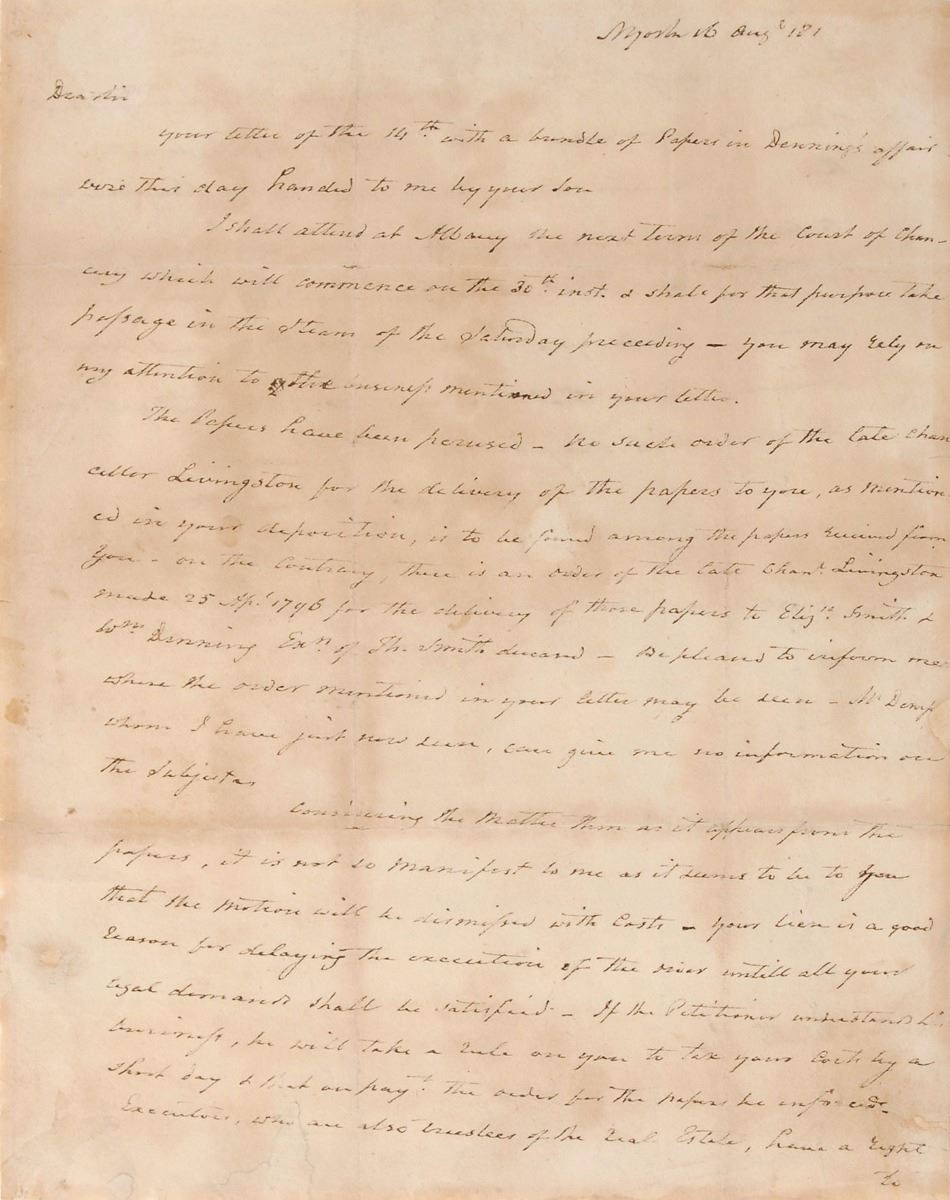 NYork 16 Augt 181
Dear Sir
your letter of the 14th with a bundle of Papers in Denning's affair
were this day handed to me by your Son
I shall attend at Albany the next term of the Court of Chan-
cery which will commence on the 30th inst. & shall for that purpose take
passage in the Steam of the Saturday preceeding – you may rely on
my attention to the business mentioned in your letter.
The Papers have been perused – no such order of the late Chan
cellor Livingston for the delivery of the papers to you, as mention
ed in your deposition, is to be found among the papers received from
you – on the Contrary, there is an order of the late Chanr. Livingston
made 25 Apl. 1796 for the delivery of those papers to Elizth. Smith &
Wm Denning Exrs. of Ths. Smith deceased – be pleased to inform me
where the order mentioned in your letter may be seen – Mr
whom I have just now seen, can give me no information on
the Subject.
Considering the Matter then as it appears from the
papers, it is not so manifest to me as it seems to be to you
that the Motion will be dismissed with Costs – your lien is a good
reason for delaying the execution of the order untill all your
legal demands shall be satisfied – If the Petitioner understands his
business, he will take a rule on you to tax your Costs by a
short day & that on payt. the order for the papers be inforced.
Executors, who are also trustees of the real Estate, have a right
to